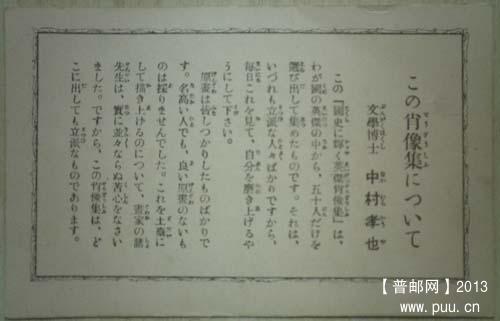 この肖像集について
文學博士 中村孝也
この『國史に輝く英傑肖像集』は、
わが國の英傑の中から、五十人だけを
選び出して集めたものです。それは、
いづれも立派な人々ばかりですから、
毎日これを見て、自分を磨き上げるや
うにして下さい。
原畫は皆しつかりしたものばかりで
す。名高い人でも、良い原畫のないも
のは採りませんでした。これを土臺に
して描き上げるのについて、畫家の諸
先生は、實に並々ならぬ苦心をなさい
ました。ですから、この肖像集は、ど
こに出しても立派なものであります。
【普邮网】2013
www.puu.cn